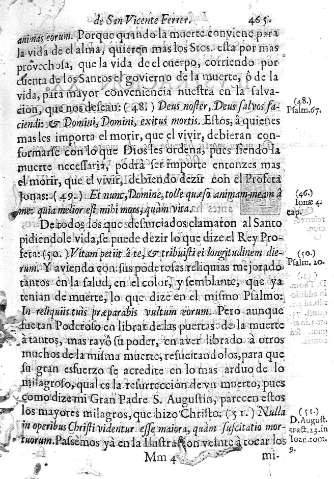 de San Vicente Ferrer. 465.
animas eorum. Porque quando la muerte conviene para
la vida de el alma, quieren mas los Stos. esta por mas
provechosa, que la vida de el cuerpo, corriendo por
cuenta de los Santos el govierno de la muerte, ò de la
vida, para mayor conveniencia nuestra en la salva-
cion, que nos desean: (48.) Deus noster, Deus salvos fa-
ciendi: & Domini, Domini, exitus mortis. Estos, à quienes
mas les importa el morir, que el vivir, debieran con-
formarse con lo que Dios les ordena, pues siendo la
muerte necessaria, podrà ser importe entonzes mas
el morir, que el vivir, debiendo dezir con el Profeta
Jonas: (49.) Et nunc, Domine, tolle quæso animam meam à
me: quia melior est mihi mors, quàm vita.
De todos los que desauciados clamaron al Santo
pidiendole vida, se puede dezir lo que dize el Rey Pro-
feta: (50.) Vitam petiit à te, & tribuisti ei longitudinem die-
rum. Y aviendo con sus poderosas reliquias mejorado
tantos en la salud, en el color, y semblante, que ya
tenian de muerte, lo que dize en el mismo Psalmo:
In reliquiis tuis præparabis vultum eorum. Pero aunque
fue tan Poderoso en librar de las puertas de la muerte
à tantos, mas rayò su poder, en aver librado à otros
muchos de la misma muerte, resucitandolos, para que
su gran esfuerzo se acredite en lo mas arduo de lo
milagroso, qual es la resurreccion de vn muerto, pues
como dize mi Gran Padre S. Augustin, parecen estos
los mayores milagros, que hizo Christo: (51.) Nulla
in operibus Christi videntur esse maiora, quàm suscitatio mor-
tuorum. Passemos yà en la Ilustracion veinte à tocar los
Mm 4 mi-
(48.)
Psalm. 67.
(46.)
Ionæ 4.
cap.
(50.)
Psalm. 20.
(51.)
D. August.
tract. in
Ioan.
9.